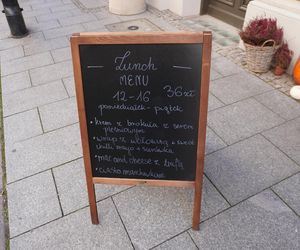 Lunch
MENU 36zł
12-16
poniedziałek - piątek
• krem z brokuła z serem
pleśniowym
• wrap z wołowiną + sweet
chilli mayo + surówka
• mac and cheese z
• ciasto marchewkowe